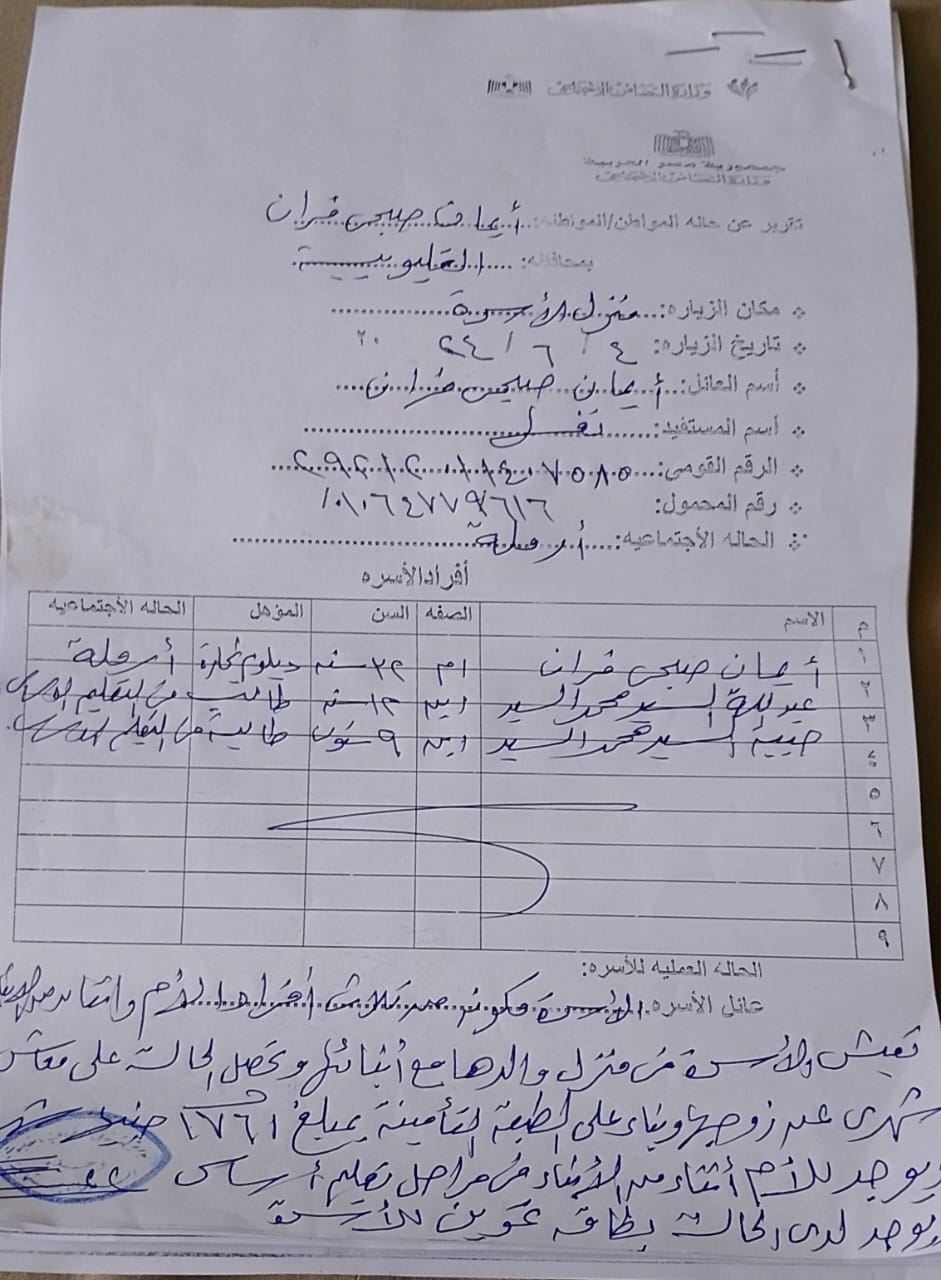 وزارة التضامن الاجتماعى
جمهورية مصر العربية
وزارة التضامن الاجتماعى
تقرير عن حاله المواطن/المواطنه: أيمان صبحى فران
بمحافظه: القليوبية
مكان الزياره: منزل الأسرة
تاريخ الزياره: ٤ / ٦ / ٢٤ ٢٠
أسم العائل: أيمان صبحى فران
أسم المستفيد:
الرقم القومى: ٢٩٢١٢٠١١٤٠٧٥٨٥
رقم المحمول:
الحاله الأجتماعيه: أرملة
أفراد الأسره
م الاسم الصفه السن المؤهل الحاله الأجتماعيه
١ أيمان صبحى فران ام ٣٢ سنه دبلوم تجارة أرملة
٢ عبدالله السيد محمد السيد ابن ١٢ سنه طالب فى التعليم
٣ حبيبة السيد محمد السيد ابنه ٩ سنوات طالبة فى التعليم
٤
٥
٦
٧
٨
٩
الحاله العمليه للأسره:
عائل الأسره: الأسرة مكونه من ثلاث أفراد الأم وأثنان من
تعيش الأسرة فى منزل والدها مع أبنائها وتحصل الحالة على معاش
شهرى عن زوجها وبناء على الطبعة التأمينة بمبلغ ١٧٦١ جنيه
ويوجد للأم أثناء من الأبناء فى مراحل تعليم أساسى
ويوجد لدى الحالة بطاقه تموين للأسرة